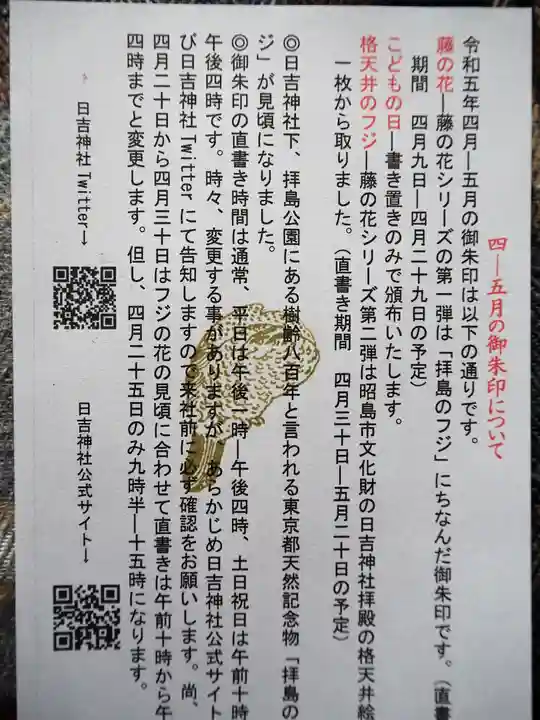 四―五月の御朱印について
令和五年四月―五月の御朱印は以下の通りです。
藤の花―藤の花シリーズの第一弾は「拝島のフジ」にちなんだ御朱印です。(直書
期間 四月九日―四月二十九日の予定)
こどもの日―書き置きのみで頒布いたします。
格天井のフジ―藤の花シリーズ第二弾は昭島市文化財の日吉神社拝殿の格天井絵
一枚から取りました。(直書き期間 四月三十日―五月二十日の予定)
◎日吉神社下、拝島公園にある樹齢八百年と言われる東京都天然記念物「拝島の
ジ」が見頃になりました。
◎御朱印の直書き時間は通常、平日は午後一時―午後四時、土日祝日は午前十時
午後四時です。時々、変更する事がありますが、あらかじめ日吉神社公式サイト
び日吉神社Twitterにて告知しますので来社前に必ず確認をお願いします。尚、
四月二十日から四月三十日はフジの花の見頃に合わせて直書きは午前十時から午
四時までと変更します。但し、四月二十五日のみ九時半―十五時になります。
日吉神社Twitter→
日吉神社公式サイト→